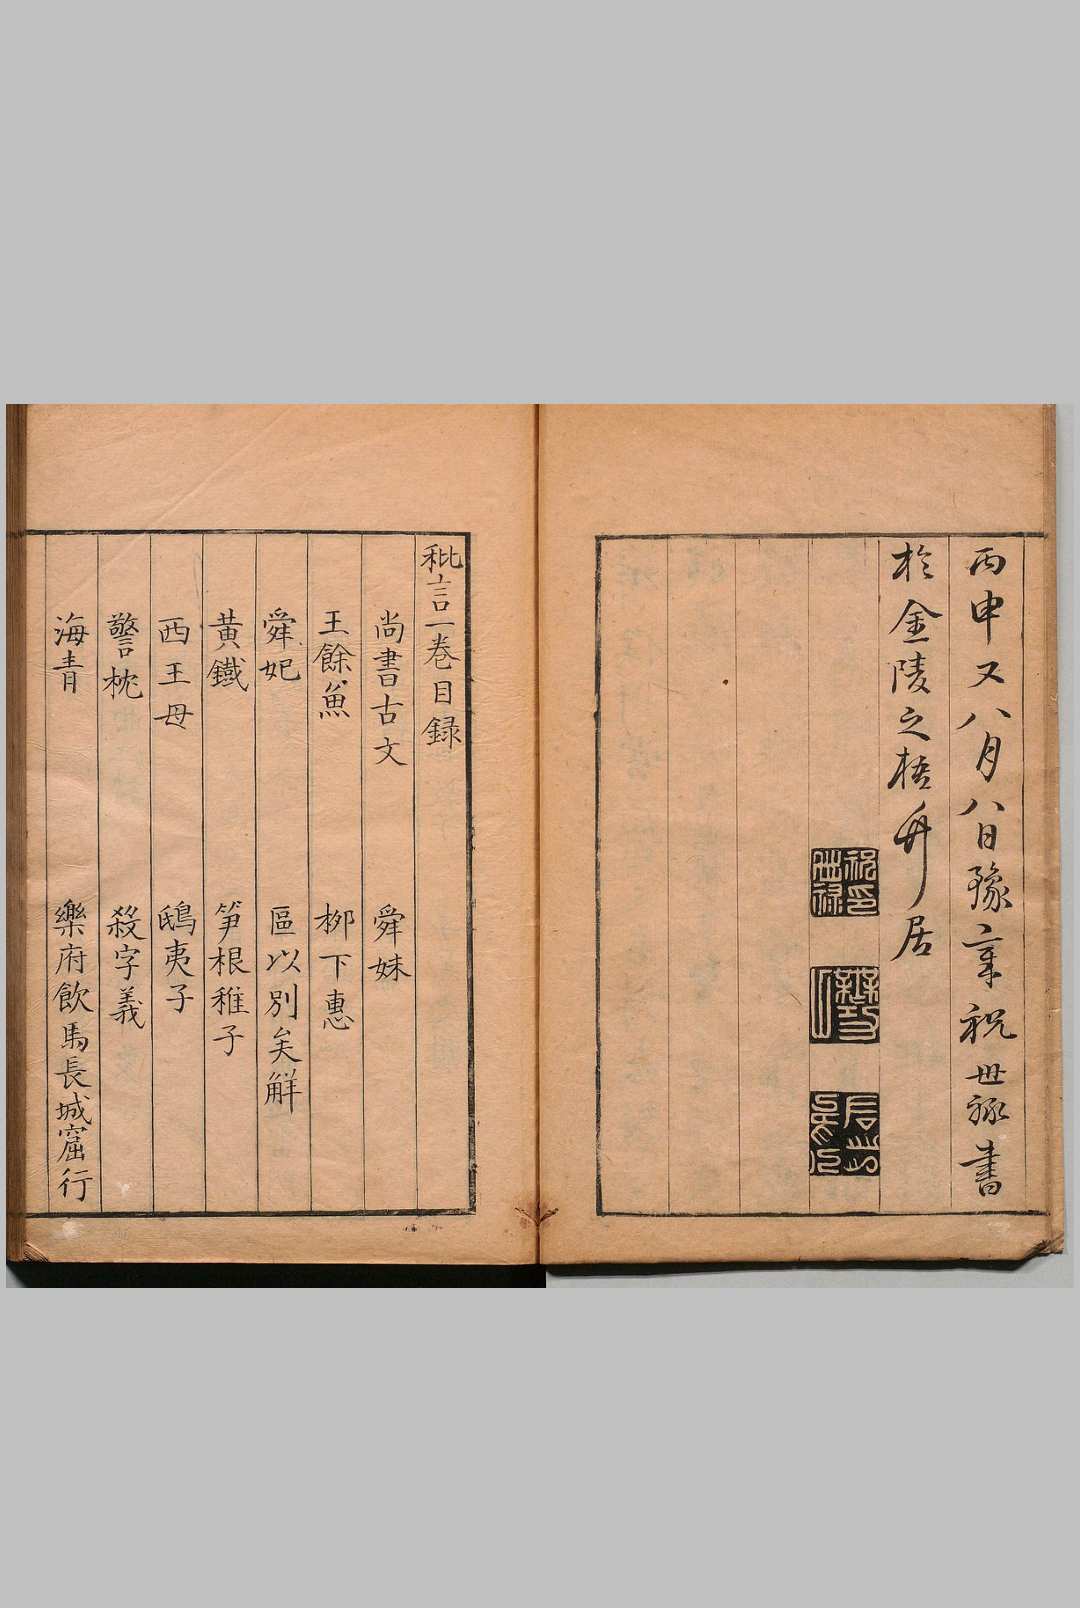 丙申又八月八日豫章祝世祿書
於金陵之梧竹居
祝印世祿
秕言一卷目録
尚書古文 舜妹
王餘魚 柳下惠
舜妃 區以別矣解
黃鐵 笋根稚子
西王母 鴟夷子
警枕 殺字義
海青 樂府飲馬長城窟行